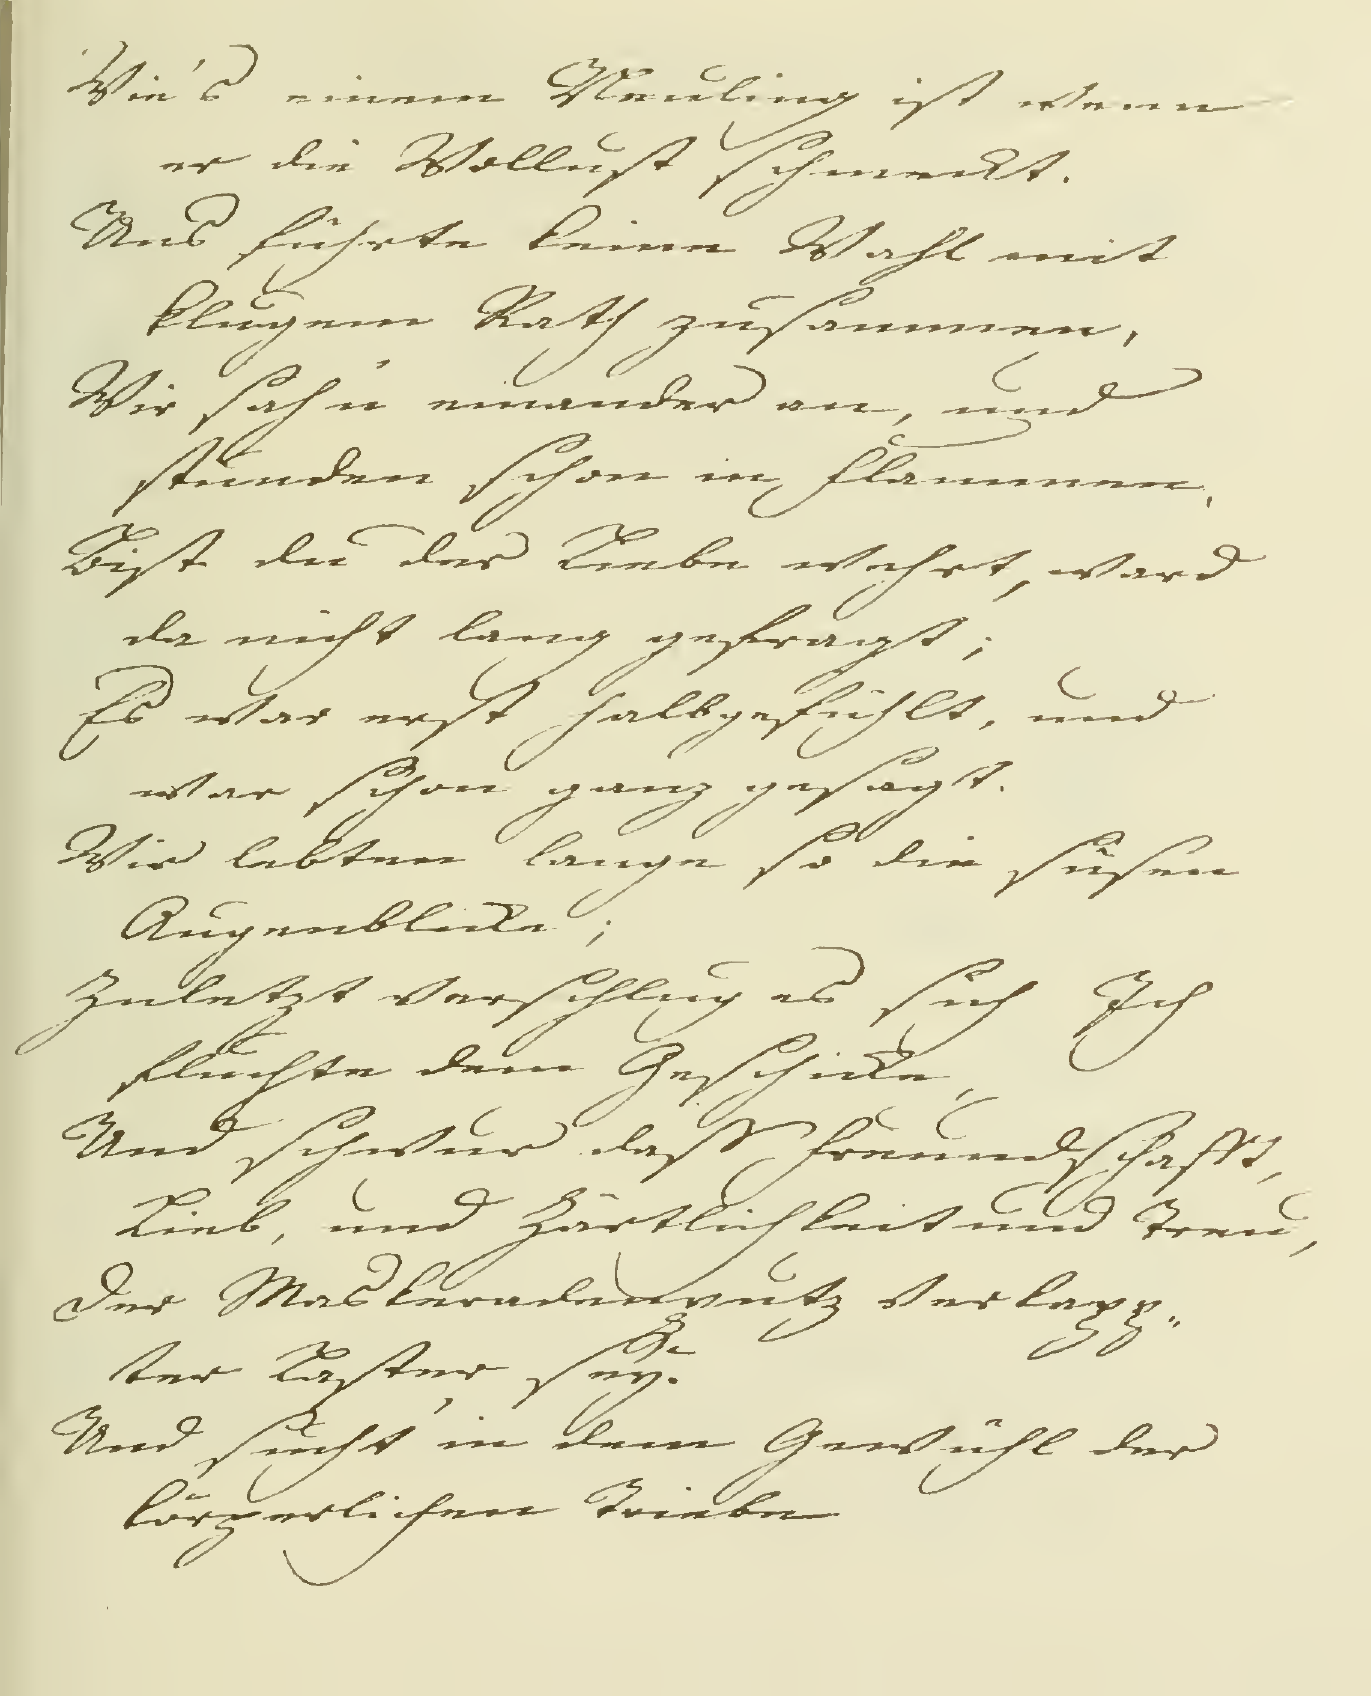 Wie's einem Neuling ist wenn
er die Wollust schmeckt.
Uns führte keine Wahl mit
klugem Rath zusammen,
Wir sah'n einander an, und
stunden schon in Flammen.
Bist du der Liebe wehrt, ward
da nicht lang gefragt;
Es war erst halbgefühlt, und
war schon ganz gesagt.
Wir lebten lange so die süsen
Augenblicke;
Zuletzt verschlug es sich Ich
fluchte dem Geschicke,
Und schwur dass Freundschafft,
Lieb, und Zärtlichkeit und Treu,
Der Maskeradenputz verkapp„
ter Laster sey.
Und sucht' in dem Gewühl der
körperlichen Triebe